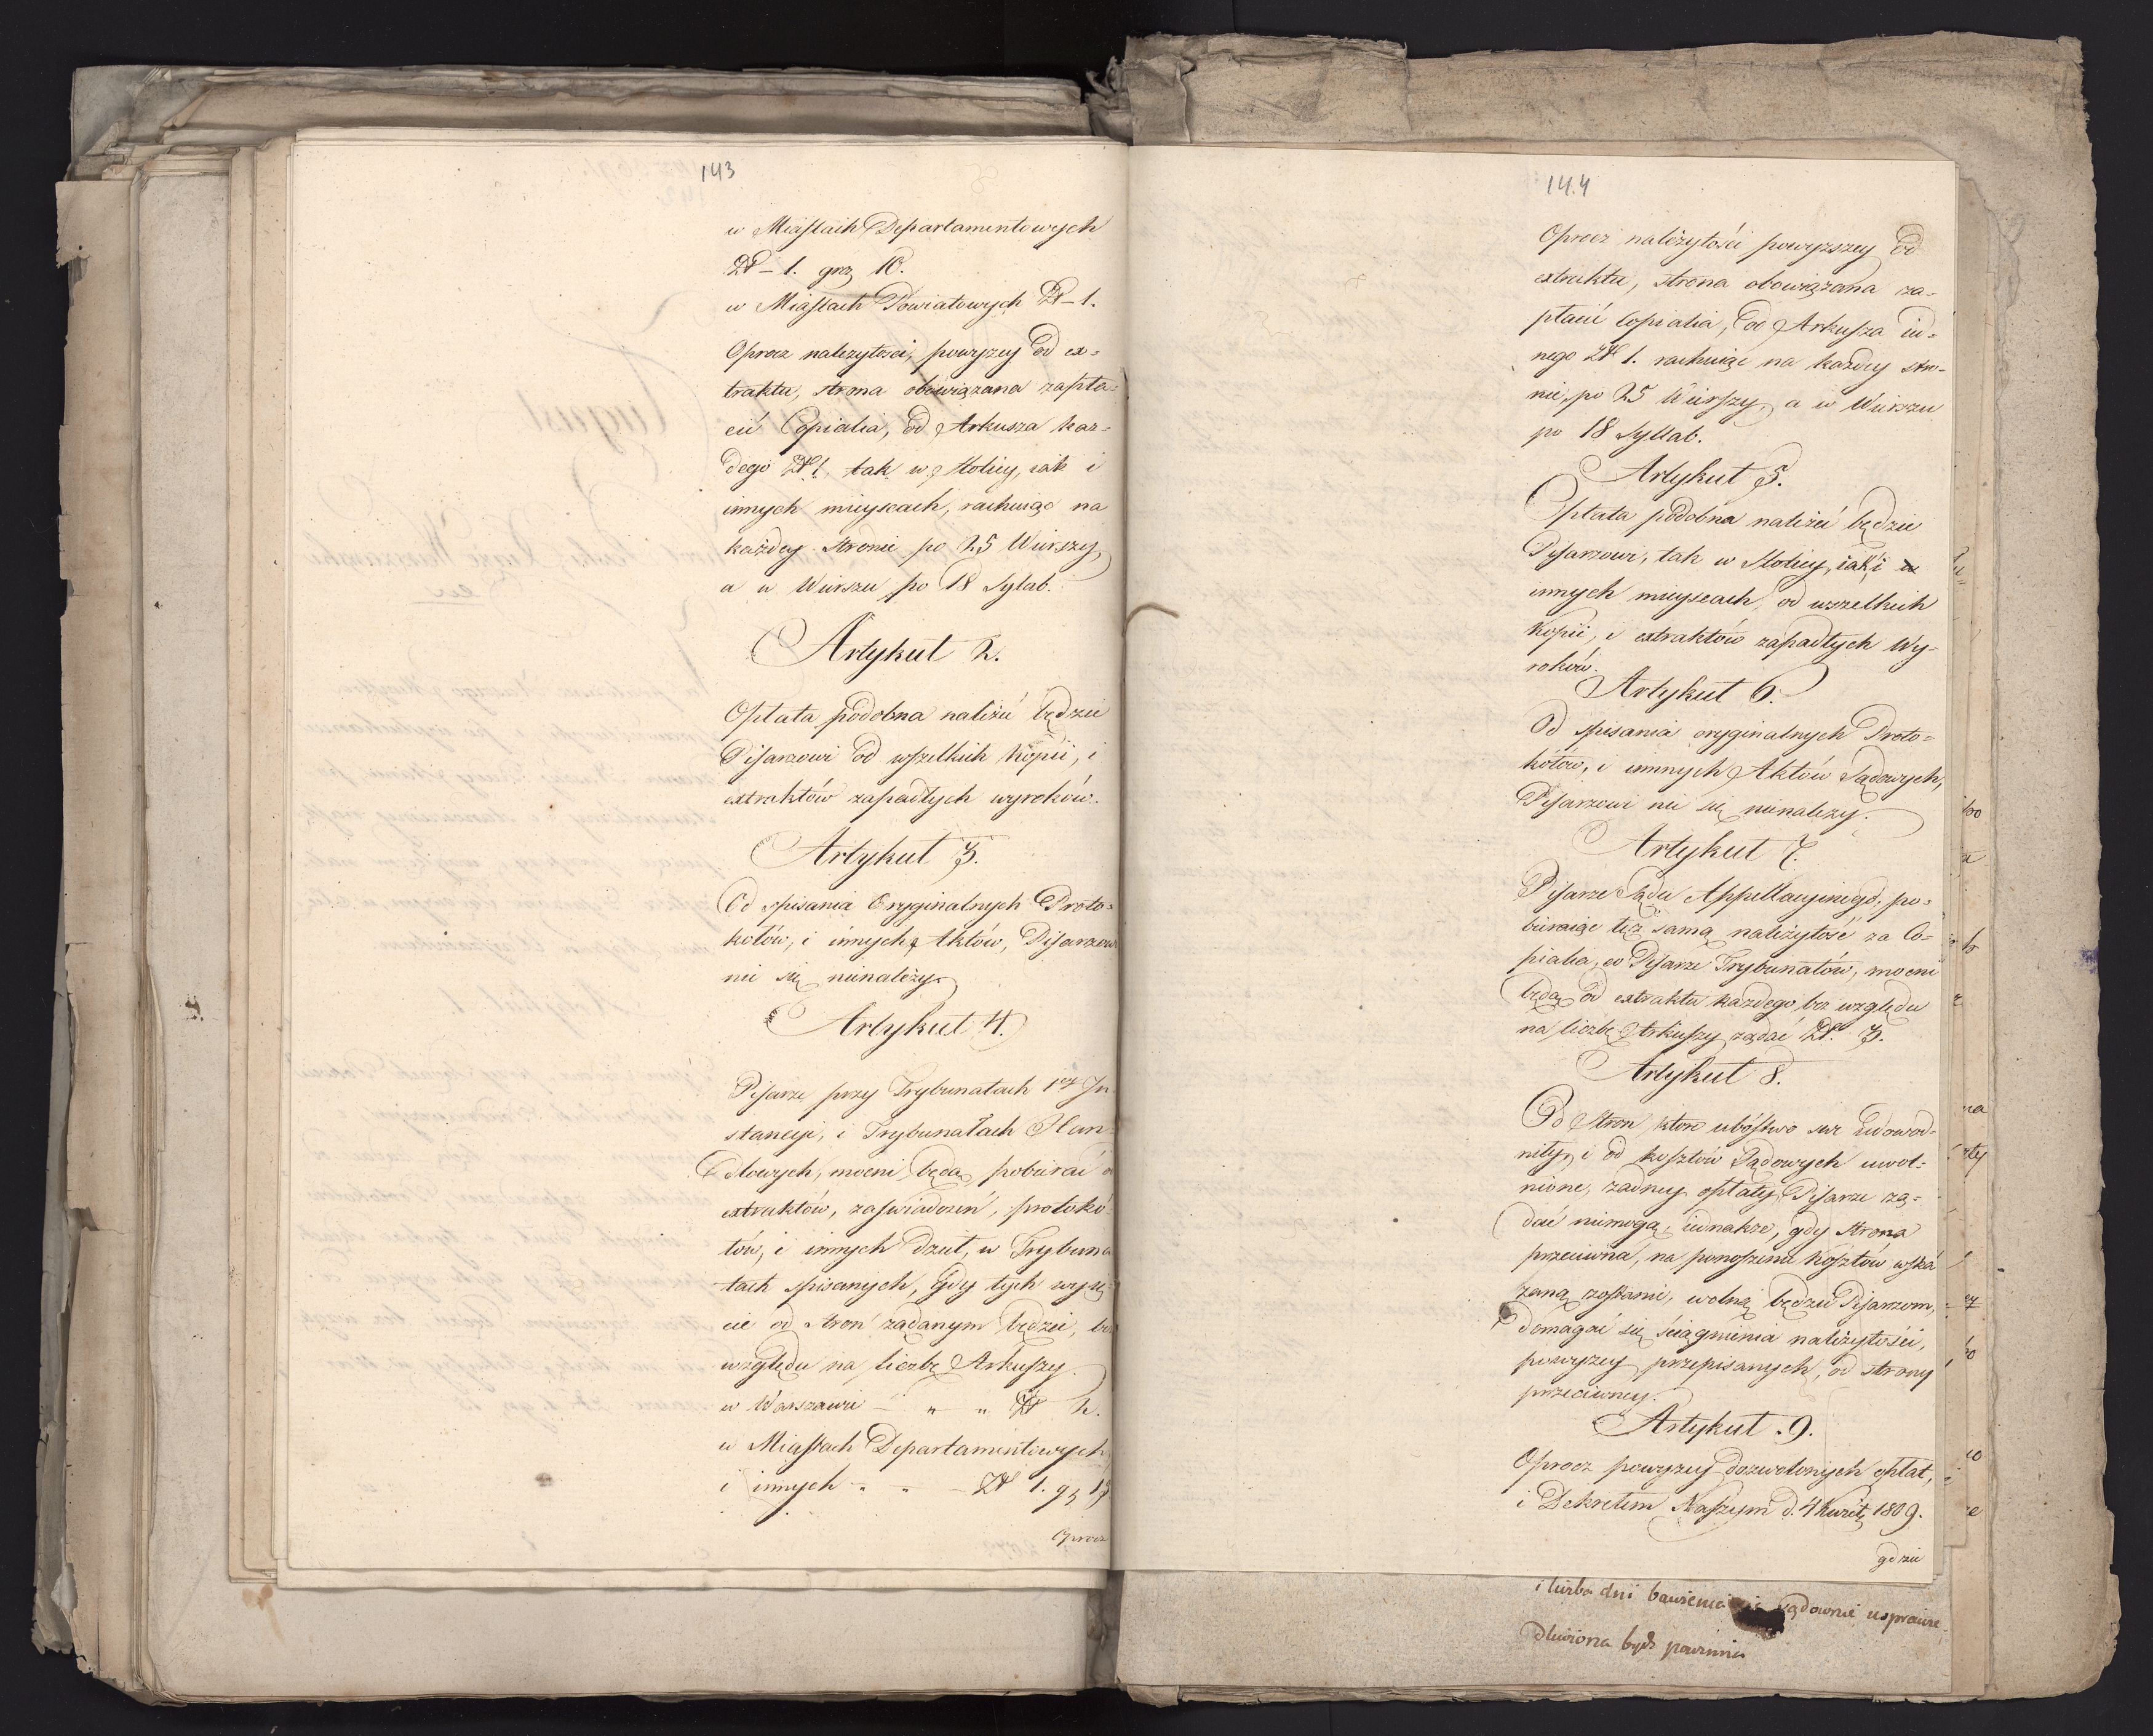 143
w Miastach Departamentowych
Zł – 1. grz 10.
w Miastach Powiatowych Zł – 1.
Oprocz nalezytosci, powyzey od ex=
traktu, strona obowiązana zapła=
cić Copialia, od Arkusza kaz=
dego Zł 1. tak w Stolicy, iak i
innych mieyscach, rachuiąc na
każdey Stronie po 25 Wierszy,
a w Wierszu po 18 Sylab.
Artykuł 2.
Opłata podobna należeć będzie
Pisarzowi od wszelkich kopii, i
extraktów zapadłych wyroków.
Artykuł 3.
Od spisania Oryginalnych Proto=
kołów, i innych Aktów, Pisarzowi
nic się nienależy.
Artykuł 4.
Pisarze przy Trybunałach 1ey In
stancyi, i Trybunałach Han=
dlowych, mocni będą, pobierać o
extraktów, zaświadczeń, protokó
łów, i innych dzieł, w Trybuna
łach spisanych, Gdy tych wyię=
cie od stron żądanym będzie, bez
względu na liczbę Arkuszy
w Warszawie – " " Zł 2.
w Miastach Departamentowych
i innych " " – Zł 1. gz 15
Oprocz
144
Oprocz należytości powyzszey od
extraktu, strona obowiązana za=
płacić Copialia, od Arkusza ied=
nego Zł 1. rachuiąc na każdey stro=
nie, po 25 Wierszy, a w Wierszu
po 18 Syllab.
Artykuł 5.
Opłata podobna należeć będzie
Pisarzowi, tak w Stolicy, iak i w
innych mieyscach, od wszelkich
kopii, i extraktów zapadłych Wy=
roków.
Artykuł 6.
Od spisania oryginalnych Proto=
kółów, i innnych Aktów Sądowych,
Pisarzowi nic się nienależy.
Artykuł 7.
Pisarze Sądu Appellacyinego, po=
bieraiąc tęż samą należytość za Co=
pialia, co Pisarze Trybunałów, mocni
będą od extraktu każdego bez względu
na liczbę Arkuszy żądać Zł. 3.
Artykuł 8.
Od Stron, ktore ubóstwo swe udowod=
niły, i od kosztów Sądowych uwol=
nione, żadney opłaty, Pisarze żą=
dać niemogą, iednakże, gdy Strona
przeciwna, na ponoszenie kosztów wska
zaną zostanie, wolną będzie Pisarzom,
domagać się ściągnienia należytości,
powyzey przepisanych, od strony
przeciwney.
Artykuł 9.
Oprocz powyzey dozwolonych opłat,
i Dekretem Naszym d. 4 Kwiet. 1809.
gdzie
i liczba dni bawienia się sądownie usprawie
dliwiona być powinna